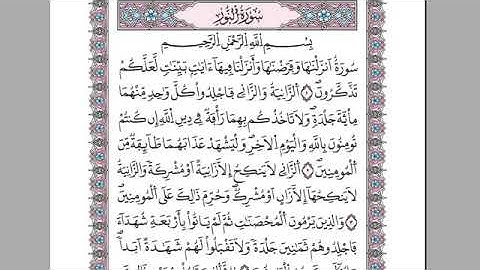 سُورَةُ النُّورِ
بِسْمِ اللَّهِ الرَّحْمَٰنِ الرَّحِيمِ
سُورَةٌ أَنزَلْنَٰهَا وَفَرَضْنَٰهَا وَأَنزَلْنَا فِيهَآ ءَايَٰتٍۭ بَيِّنَٰتٍ لَّعَلَّكُمْ
تَذَكَّرُونَ ١ ٱلزَّانِيَةُ وَٱلزَّانِي فَٱجْلِدُوا۟ كُلَّ وَٰحِدٍ مِّنْهُمَا
مِا۟ئَةَ جَلْدَةٍ ۖ وَلَا تَأْخُذْكُم بِهِمَا رَأْفَةٌ فِي دِينِ ٱللَّهِ إِن كُنتُمْ
تُؤْمِنُونَ بِٱللَّهِ وَٱلْيَوْمِ ٱلْءَاخِرِ ۖ وَلْيَشْهَدْ عَذَابَهُمَا طَآئِفَةٌ مِّنَ
ٱلْمُؤْمِنِينَ ٢ ٱلزَّانِي لَا يَنكِحُ إِلَّا زَانِيَةً أَوْ مُشْرِكَةً وَٱلزَّانِيَةُ
لَا يَنكِحُهَآ إِلَّا زَانٍ أَوْ مُشْرِكٌ ۚ وَحُرِّمَ ذَٰلِكَ عَلَى ٱلْمُؤْمِنِينَ
٣ وَٱلَّذِينَ يَرْمُونَ ٱلْمُحْصَنَٰتِ ثُمَّ لَمْ يَأْتُوا۟ بِأَرْبَعَةِ شُهَدَآءَ
فَٱجْلِدُوهُمْ ثَمَٰنِينَ جَلْدَةً وَلَا تَقْبَلُوا۟ لَهُمْ شَهَٰدَةً أَبَدًا ۚ